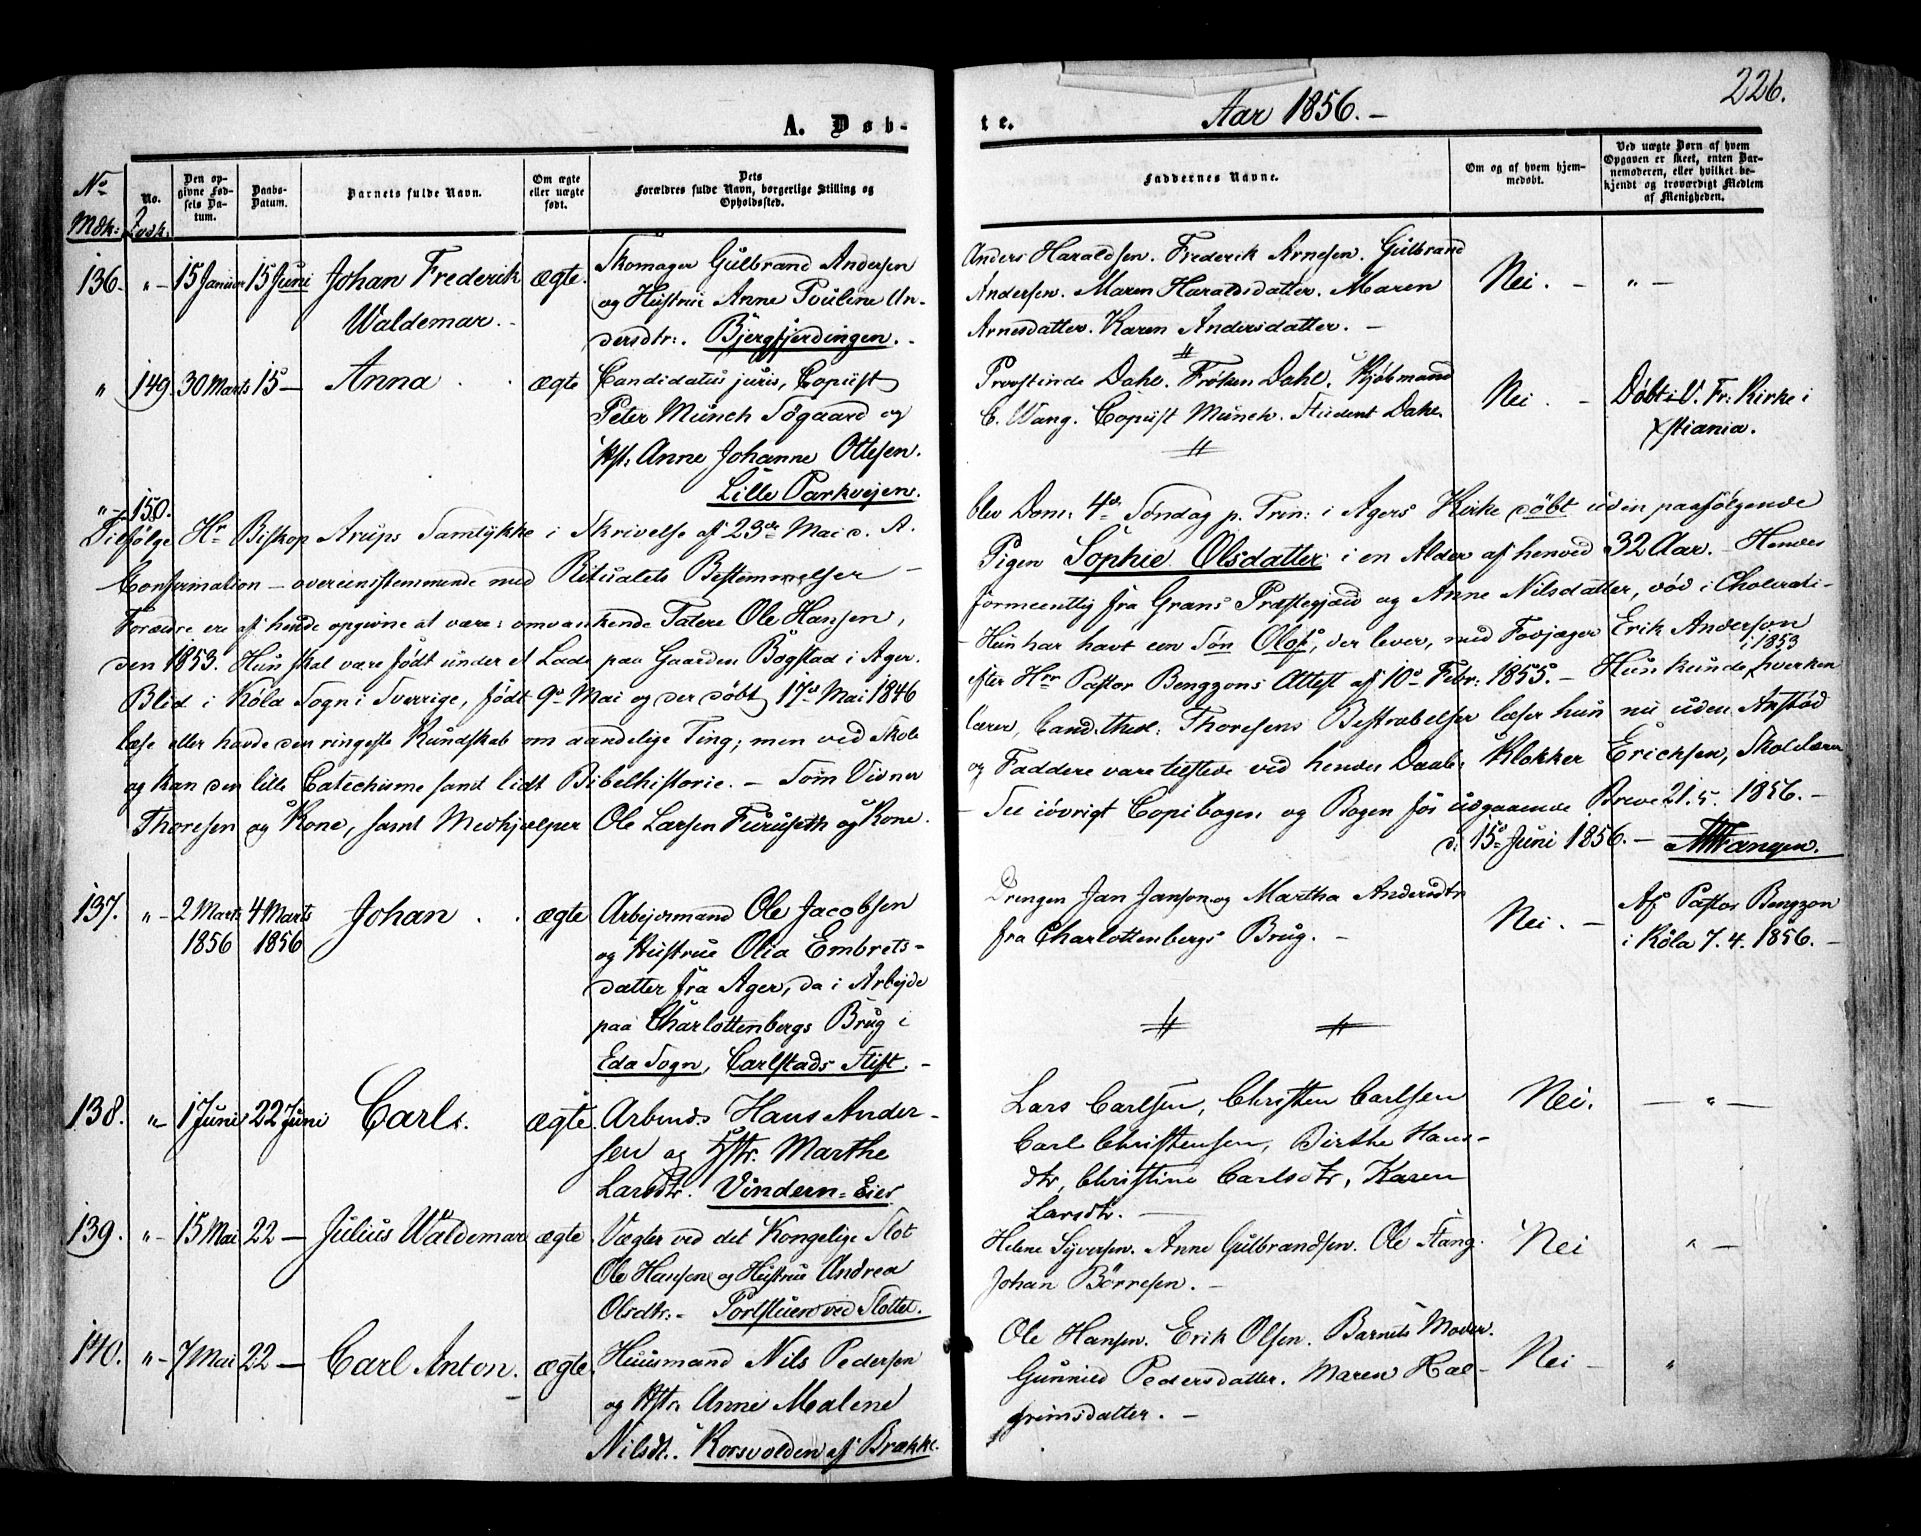 226.
A. Døb-
te.
Aar 1856. –
No
Mdk:
No.
Qvdk.
Den op-
givne Fød-
sels Da-
tum.
Daabs-
Datum.
Barnets fulde Navn.
Om ægte
eller uægte
født.
Dets
Forældres fulde Navn, borgerlige Stilling og
Opholdssted.
Faddernes Navne.
Om og af hvem hjem-
medøbt.
Ved uægte Børn af hvem
Opgaven er skeet, enten Bar-
nemoderen, eller hvilket be-
kjendt og troværdigt Medlem
af Menigheden.
136. " – 15 Januar 15 Juni Johan Frederik ægte. Skomager Gulbrand Andersen
Waldemar. – og Hustrue Anne Pouline An-
dersdtr:. Bjergfjerdingen. –
Anders Haraldsen. Frederik Arnesen. Gulbrand
Andersen. Maren Haraldsdatter. Maren
Arnesdatter. Karen Andersdatter. –
Nei. – " –
" 149. 30 Marts 15 – Anna . . ægte Candidatus juris, Copiist
Peter Munch Søgaard og
Hst: Anne Johanne Ottesen.
Lille Parkvejen.
Provstinde Dahl. Frøken Dahl. Kjøbmand
C. Wang. Copiist Munch. Student Dahl.
Nei. – Døbt i V. Fr: Kirke i
Xstiania.
" – 150.
Tilfølge Hr Biskop Arups Samtykke i Skrivelse af 23de Mai d. A.
blev Dom: 4de Søndag p. Trin: i Agers Kirke døbt uden paafølgende
Confirmation – overeensstemmende med Ritualets Bestemmelser –
Pigen Sophie Olsdatter i en Alder af henved 32 Aar. – Hendes
Forældre ere af hende opgivne at være: omvankende Tatere Ole Hansen,
formeentlig fra Grans Præstegjeld og Anne Nilsdatter, død i Cholerati-
den 1853. Hun skal være født under et Lade paa Gaarden Bogstad i Ager.
– Hun har havt een Søn Olof, der lever, med Fovjæger Erik Anderson
Blid i Köla Sogn i Sverrige, født 9d Mai og der døbt 17d Mai 1846
efter Hrr Pastor Bengzons Attest af 10d Febr: 1855. – Hun kunde i 1853 hverken
læse eller havde den ringeste Kundskab om aandelige Ting; men ved Skole-
lærer, Cand. theol: Thoresens Bestræbelser læser hun nu uden Anstød
og kan den lille Catechisme samt lidt Bibelhistorie. – Som Vidner
og Faddere vare tilstede ved hendes Daab: Klokker Erichsen, Skolelærer
Thoresen og Kone, samt Medhjælper Ole Larsen Furuseth og Kone.
– See iøvrigt Copibogen og Bogen for udgaaende Breve 21. 5. 1856. –
d. 15d Juni 1856. – Wangen.
137. " – 2 Marts 4 Marts Johan . . ægte Arbejdsmand Ole Jacobsen
1856 1856 og Hustrue Olia Embrets-
datter fra Ager, da i Arbejde
paa Charlottenbergs Brug i
Eda Sogn, Carlstads Stift. –
Drengen Jan Janson og Martha Andersdtr
fra Charlottenbergs Brug. –
Nei. – Af Pastor Bengzon
i Köla 7. 4. 1856. –
138. " – 1 Juni 22 Juni Carl. ægte. Arbmd. Hans Ander-
sen og Hstr. Marthe
Larsdtr. Vindern-Eier
Lars Carlsen, Christen Carlsen
Carl Christensen, Birthe Hans-
dtr, Christine Carlsdtr, Karen
Larsdtr. –
Nei. – " –
139. " – 15 Mai 22 – Julius Waldemar ægte. Vægter ved det Kongelige Slot
Ole Hansen og Hustrue Andrea
Olsdtr: – Portstuen ved Slottet.
Helene Syversen. Anne Gulbrandsen. Ole Stang.
Johan Börresen. –
Nei " –
140. " – 7 Mai 22 – Carl Anton. ægte. Huusmand Nils Pedersen
og Hstr Anne Malene
Nilsdt. Korsvolden af Brække.
Ole Hansen. Erik Olsen. Barnets Moder.
Gunnild Pedersdatter. Maren Hal-
grimsdatter. –
Nei – "